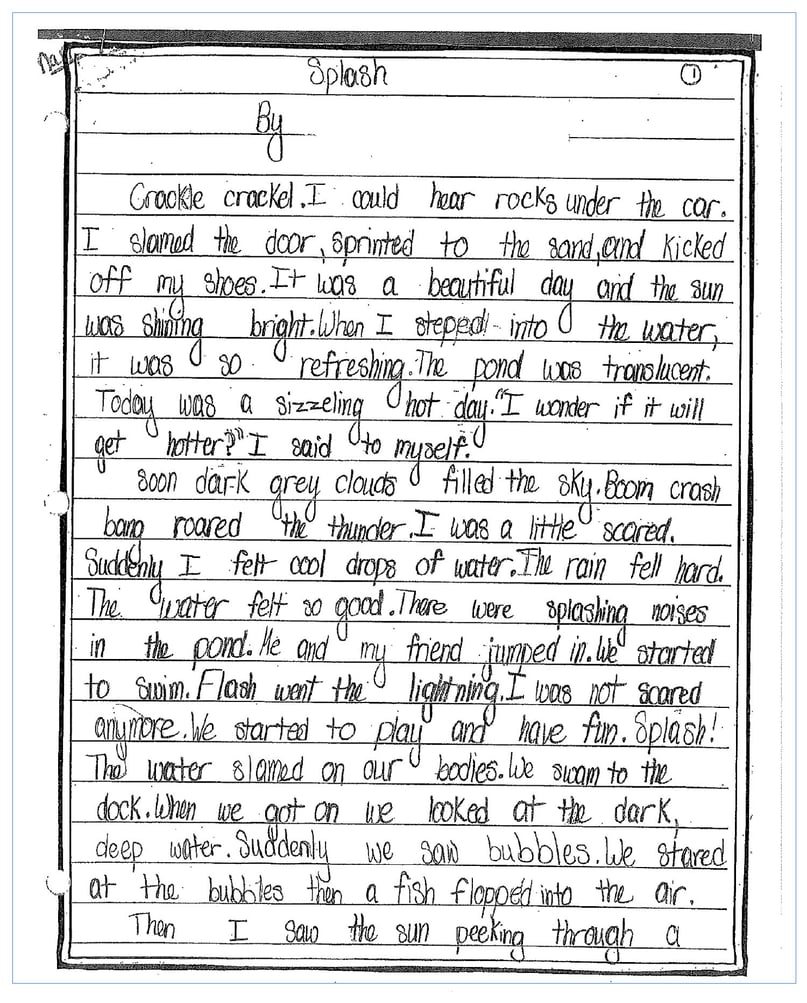 Splash ①
By
Crackle crackel. I could hear rocks under the car.
I slamed the door, sprinted to the sand, and kicked
off my shoes. It was a beautiful day and the sun
was shining bright. When I steped into the water,
it was so refreshing. The pond was translucent.
Today was a sizzeling hot day. "I wonder if it will
get hotter?" I said to myself.
soon dark grey clouds filled the sky. Boom crash
bang roared the thunder. I was a little scared.
Suddenly I felt cool drops of water. The rain fell hard.
The water felt so good. There were splashing noises
in the pond. Me and my friend jumped in. We started
to swim. Flash went the lightning. I was not scared
anymore. We started to play and have fun. Splash!
The water slamed on our bodies. We swam to the
dock. When we got on we looked at the dark,
deep water. Suddenly we saw bubbles. We stared
at the bubbles then a fish flopped into the air.
Then I saw the sun peeking through a